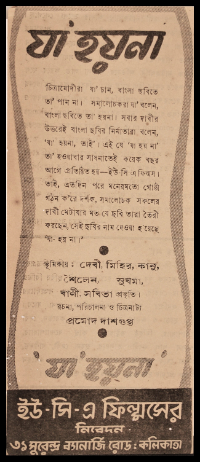 যা' হয়না
চিত্রামোদীরা যা' চান, বাংলা ছবিতে
তা' পান না। সমালোচকরা যা' বলেন,
বাংলা ছবিতে তা' হয়না। সবার স্বার্থের
উত্তরেই বাংলা ছবির নির্মাতারা বলেন,
"যা' হয়না, তাই"। এই যে 'যা হয় না'
তা' হওয়াবার সাধনাতেই কয়েক বছর
আগে প্রতিষ্ঠিত হয়—ইউ-সি-এ ফিল্মস।
তাই, এতদিন পরে মনোমতো গোষ্ঠী
গঠন ক'রে দর্শক, সমালোচক সকলের
দাবী মেটাবার মত যে ছবি তারা তৈরী
করছেন, সেই ছবির নাম দেওয়া হ'য়েছে
"যা-হয় না।"
ভূমিকায় : দেবী, মিহির, কানু,
শৈলেন, সুষমা,
বাণী, সবিতা প্রভৃতি।
রচনা, পরিচালনা ও চিত্রনাট্য
প্রমোদ দাশগুপ্ত
'যা' হয়না'
ইউ-সি-এ ফিল্মসের
নিবেদন
৩১ সুরেন্দ্র ব্যানার্জি রোড : কলিকাতা